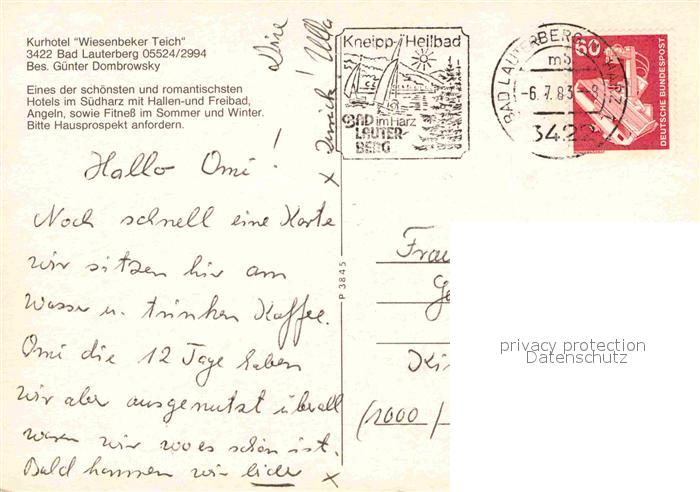 Kurhotel "Wiesenbeker Teich"
3422 Bad Lauterberg 05524/2994
Bes. Günter Dombrowsky
Eines der schönsten und romantischsten
Hotels im Südharz mit Hallen-und Freibad,
Angeln, sowie Fitneß im Sommer und Winter.
Bitte Hausprospekt anfordern.
Hallo Omi!
Noch schnell eine Karte
wir sitzen hir am
Wasser u. trinken Kaffee.
Omi die 12 Tage haben
wir aber ausgenutzt überall
waren wir wo es schön ist.
Bald kommen wir lieder x
x zurück! Ulla
Deine
Kneipp-Heilbad
BAD im Harz
LAUTER-
BERG
BAD LAUTERBERG IM HARZ 1
mb
-6.7.83-8
3422
60
DEUTSCHE BUNDESPOST
P 3845
Frau
(1000/
privacy protection
Datenschutz